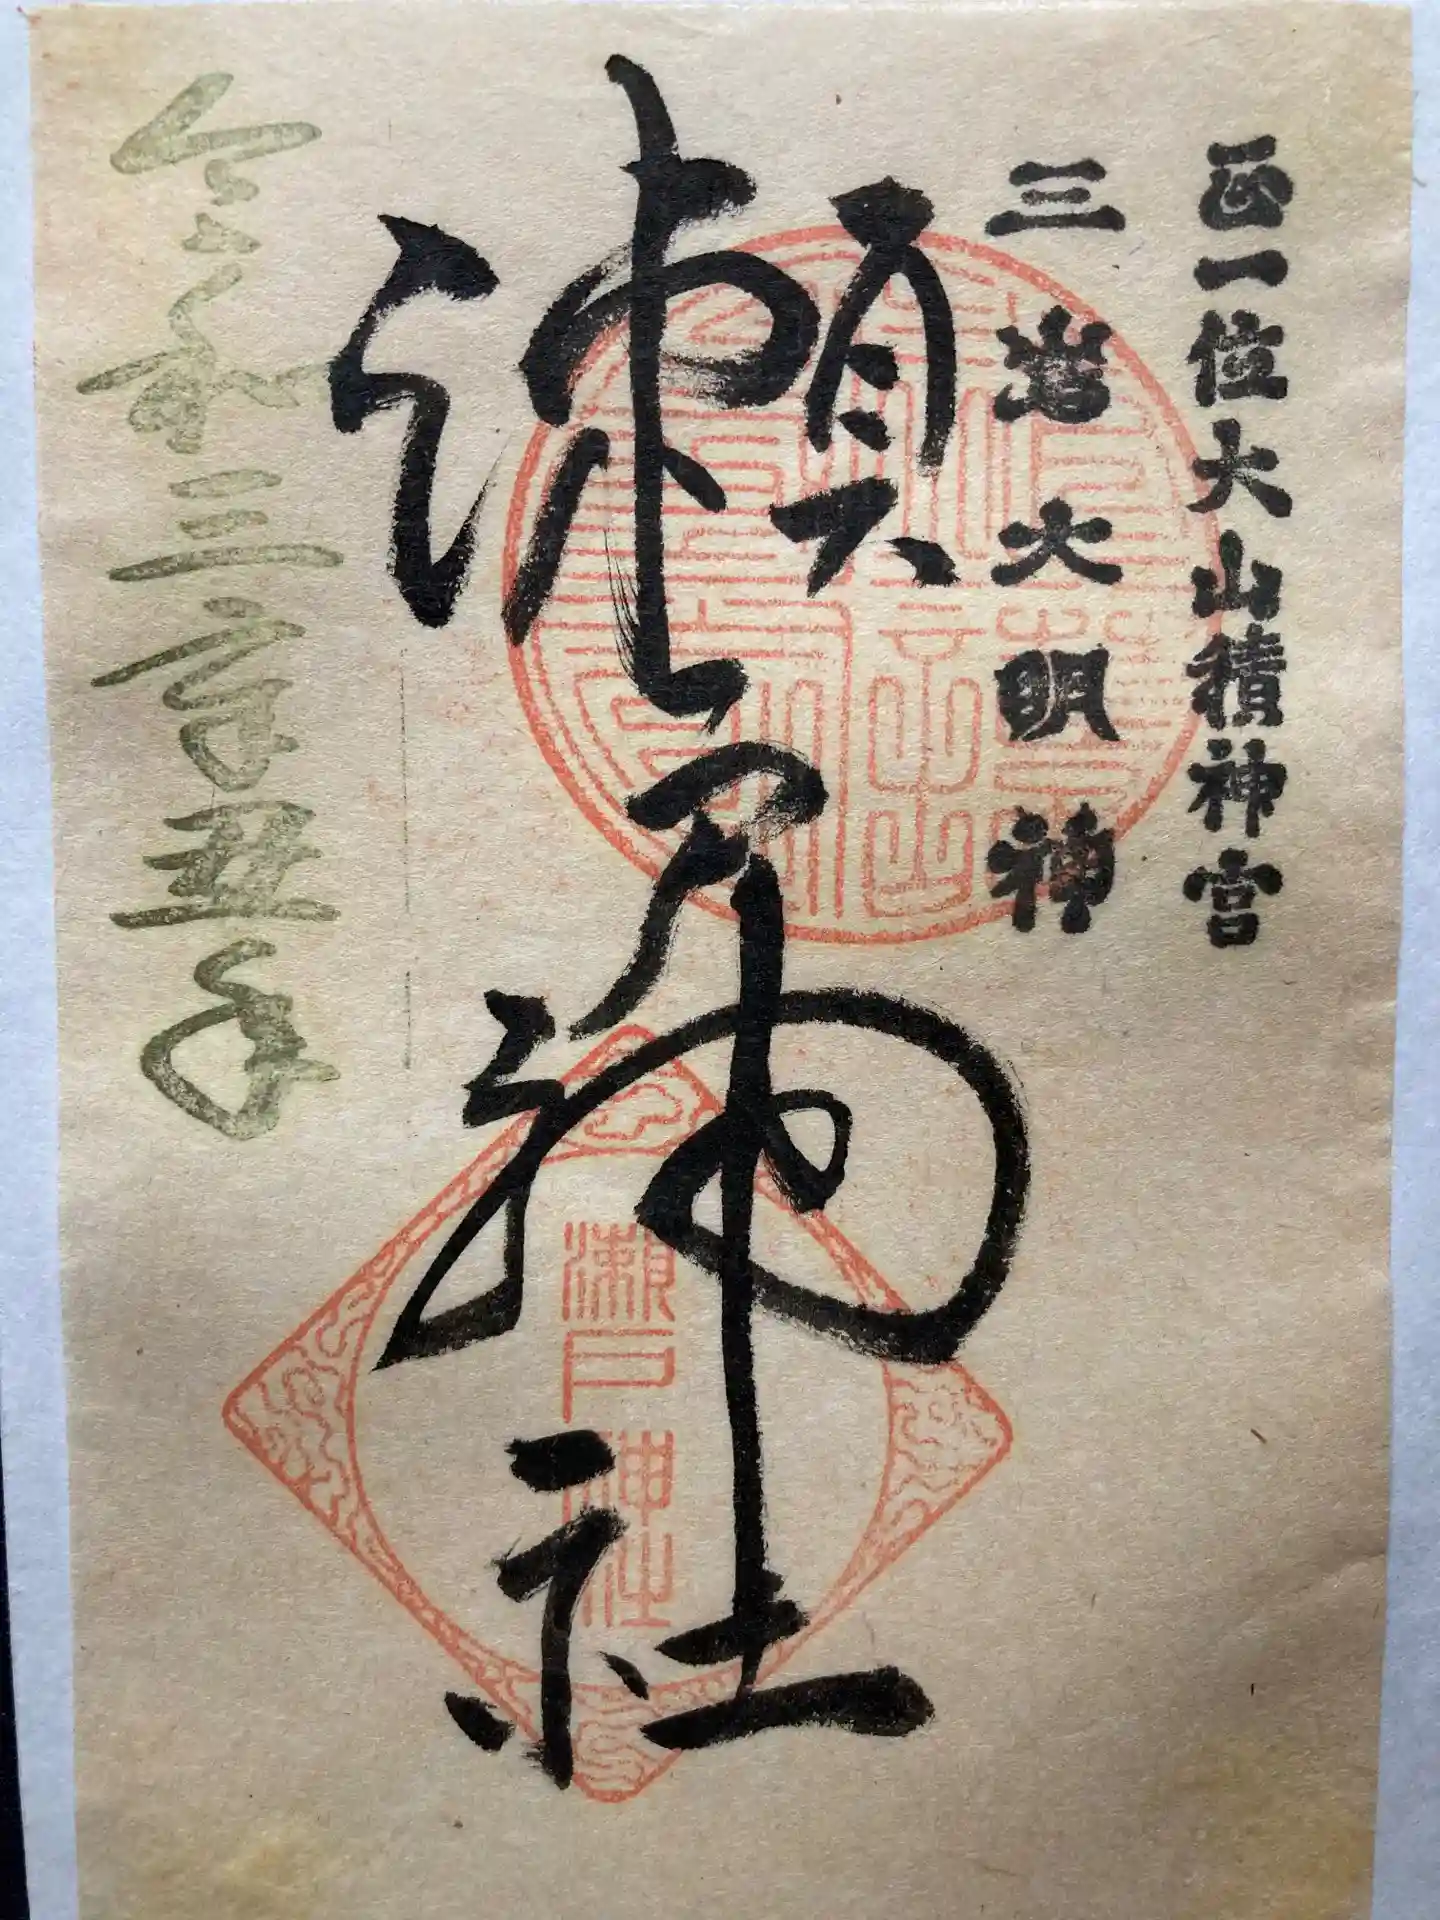 正一位大山積神宮
三嶌大明神
瀬戸神社
瀬戸神社
令和三辛丑年